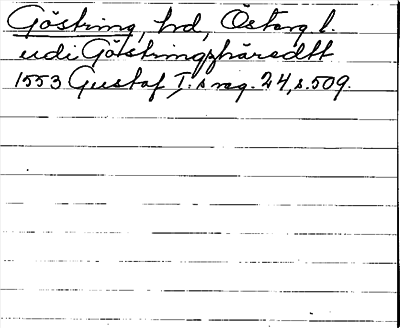 Göstring, hd, Österg l.
udi Götstringzhäredtt
1553 Gustaf I:s reg. 24, s. 509.